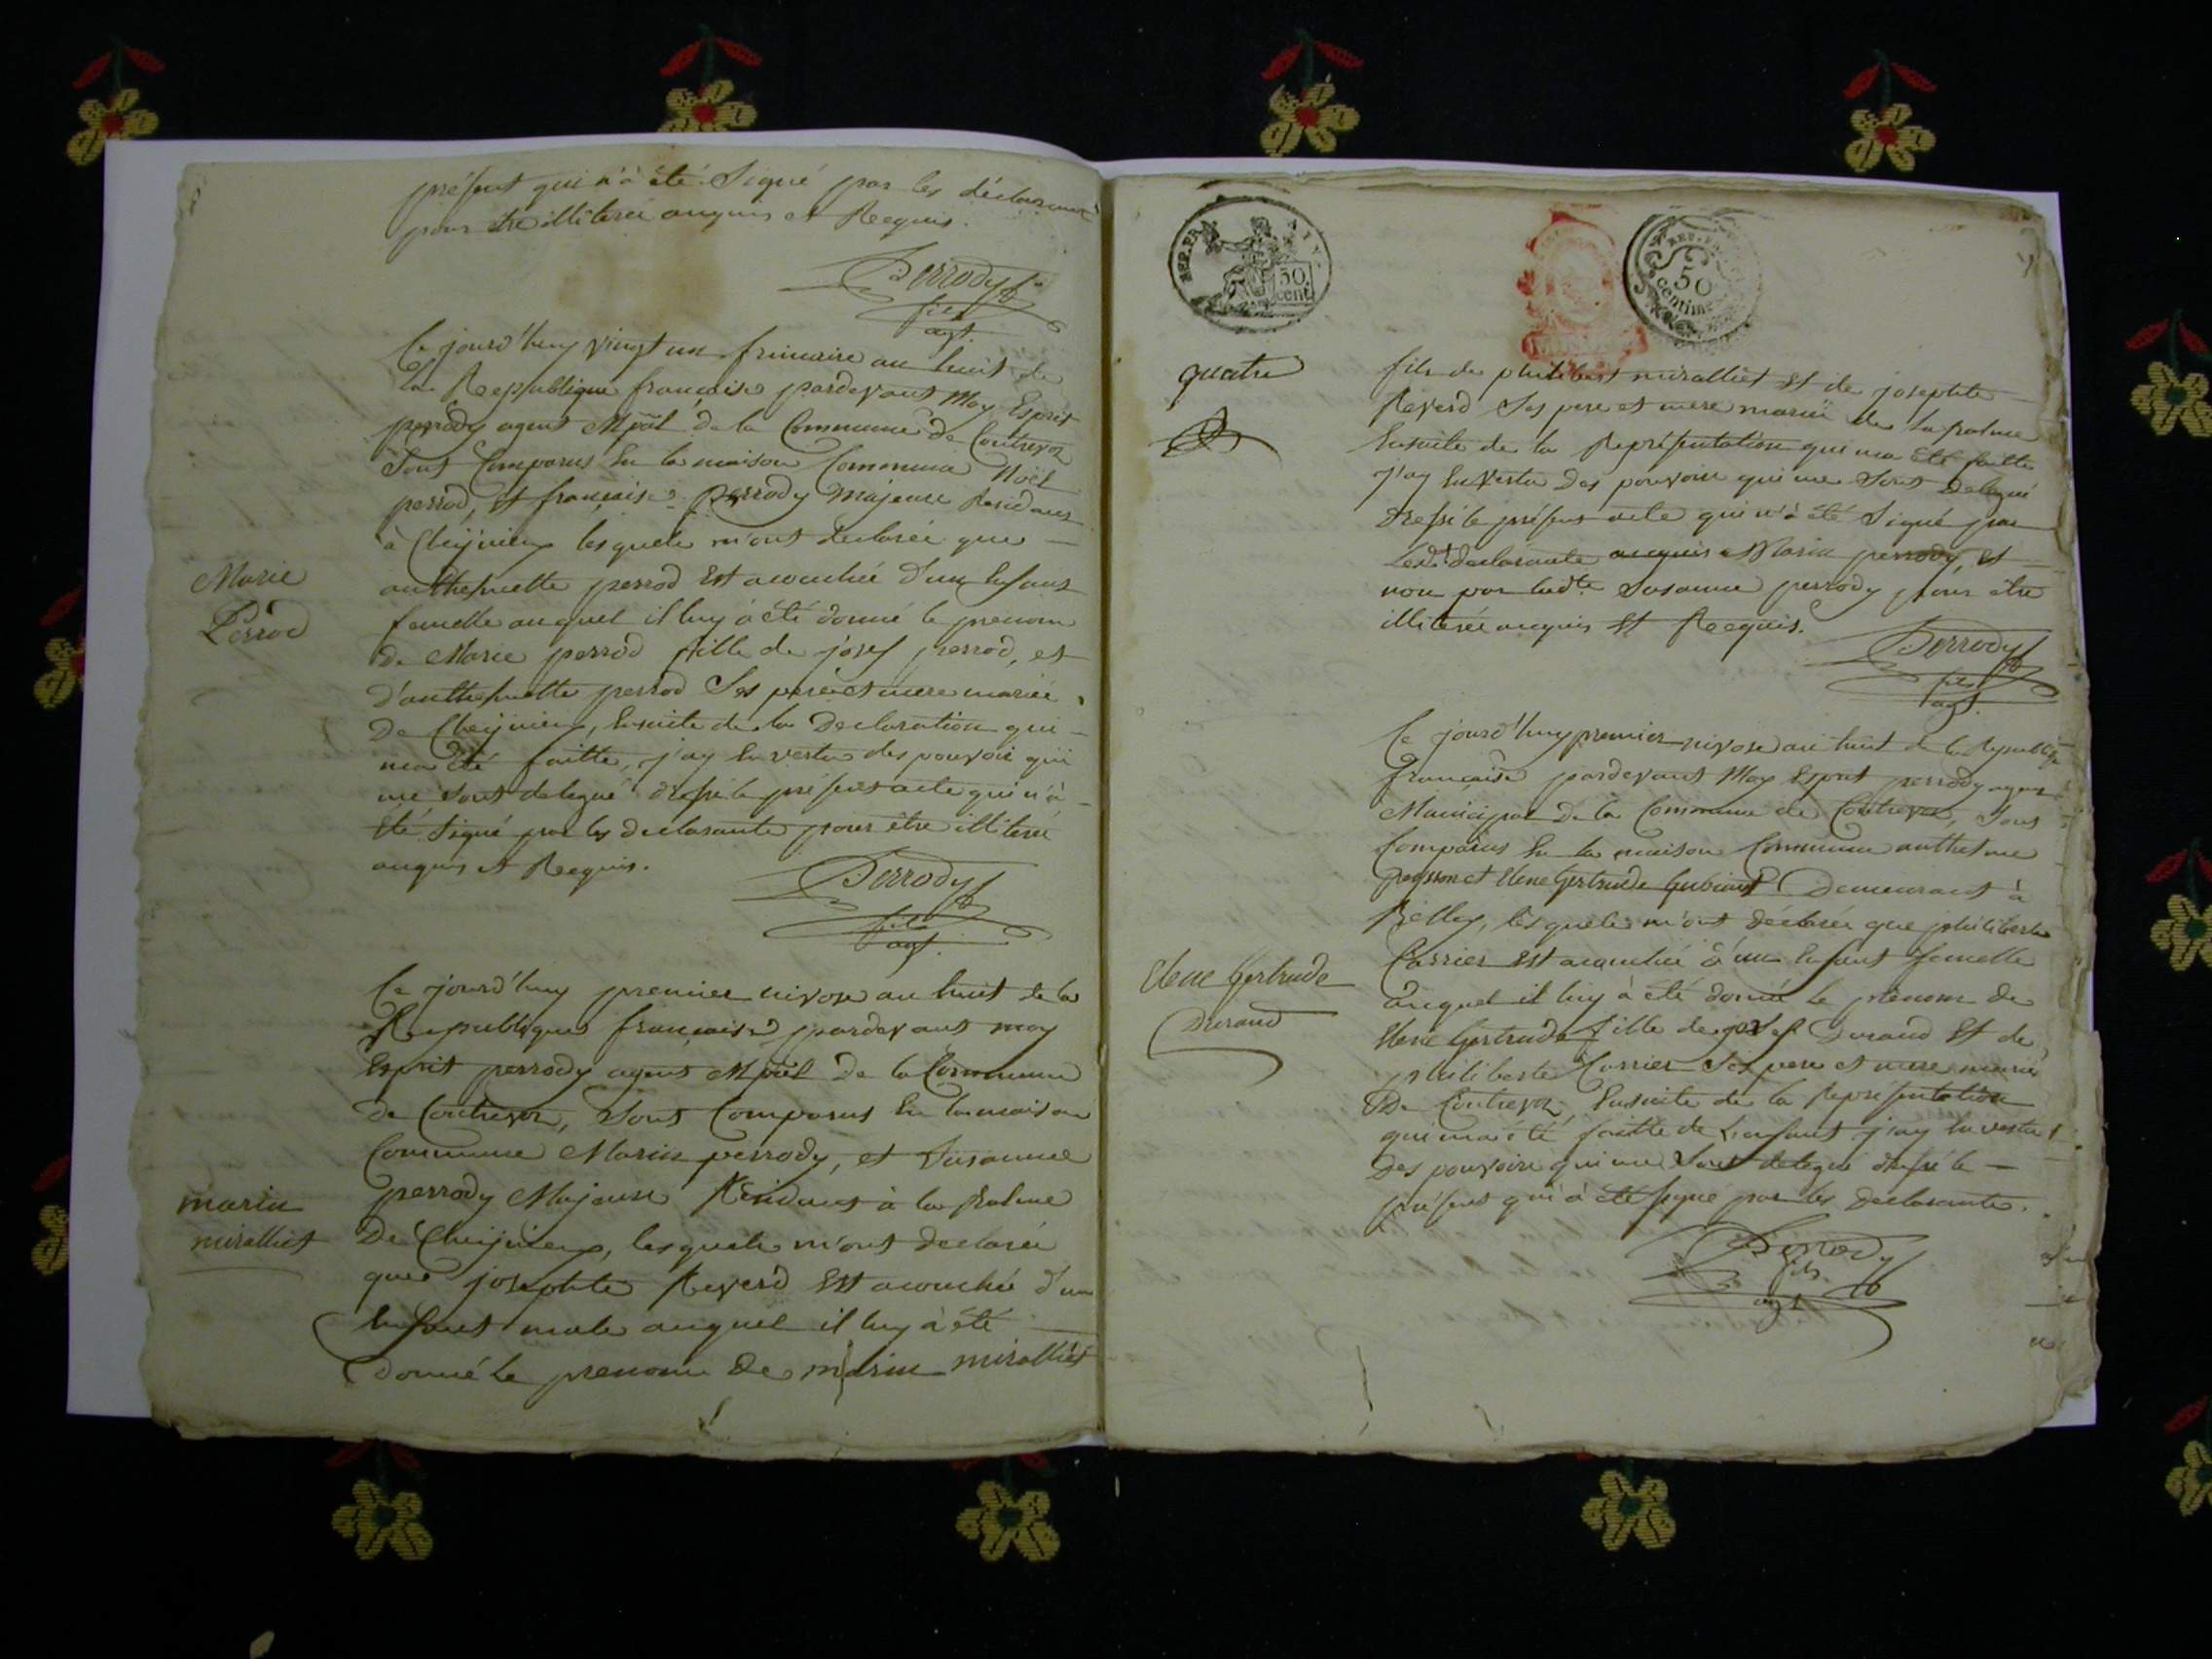 présent qui n'à été Signé par les déclarants
pour etre illiteréé anquis et Requis.
Perrody
fils
agt.
Ce jourd'huy vingt un frimaire an huit de
la Republique française pardevant Moy Esprit
perrody agent Mpâl de la Commune de Contrevoz
Sont Comparus En la maison Commune Noël
perrod, et françoise perrody Majeure Residants
à Cheignieux lesquels m'ont declarée que
Marie
Perrod
anthelmette perrod Est acouchée d'un Enfant
femelle auquel il luy à été donné le prenom
de Marie perrod fille de josef perrod, et
d'anthelmette perrod Ses pere et mere mariée
De Cheignieux, Ensuite de la Declaration qui
ma été faitte, j'ay En vertu des pouvoir qui
me sont delegué dressé le présent acte qui n'à
été Signé par les declarants pour être illiteréé
anquis et Requis.
Perrody
fils
agt.
Ce jourd'huy premier nivose an huit de la
Republique française pardevant moy
Esprit perrody agent Mpâl de la Commune
de Contrevoz, Sont Comparus En la maison
Commune Marin perrody, et Susanne
marin
miralliet
perrody Majeure Residants à la Balme
De Cheignieux, lesquels m'ont declarée
que josephte Reverd Est acouchée d'un
Enfant male auquel il luy à été
donné le prenom de marin miralliet
REP. FRA
50 cent
REP. FRA
50
centim
quatre
fils de philibert miralliet et de josephte
Reverd Ses pere et mere mariéé de la balme
Ensuite de la Représentation que ma été faitte
j'ay En Vertu Des pouvoir qui me Sont Delegué
Dressé le présent acte qui n'à été Signé par
Les dt. declarants anquis Marin perrody, et
non par ladte. Susanne perrody pour être
illiteréé anquis Et Requis.
Perrody
fils
agt.
Ce jourd'huy premier nivose an huit de la Republique
française pardevant Moy Esprit perrody agent
Municipal De la Commune de Contrevoz, Sont
Comparus En la maison Commune anthelme
et Elene Gertrude Demeurant à
Belley, lesquels m'ont déclarée que philiberte
Carrier Est acouchée d'un Enfant femelle
Elene Gertrude
Durand
auquel il luy à été donné le prénom de
Elene Gertrude fille de josef Durand Et de
philiberte Carrier Ses pere et mere mariée
De Contrevoz, Ensuite de la Représentation
qui ma été faitte de L'enfant j'ay En vertu
Des pouvoir qui me Sont delegué dressé le
présent qui à été signé par les Declarants.
Perrody
fils.
agt.